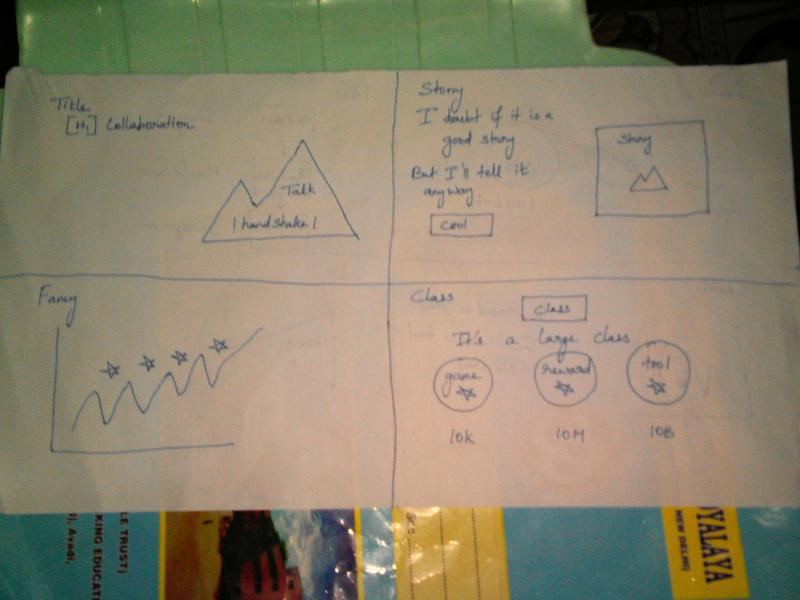 Title
[H1] Collaboration
Talk
|handshake|
Story
I doubt if it is a
good story
But I'll tell it
anyway
Cool
Story
Fancy
Class
class
It's a large class
game
reward
tool
10K
10M
10B
LE TRUST)
KING EDUCAT
), Avadi,
DYALAYA
NEW DELHI)